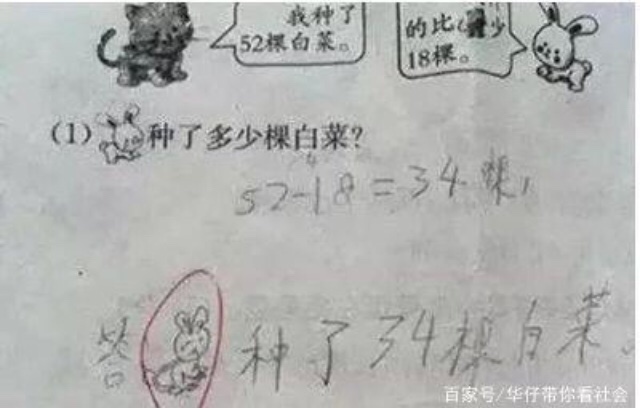 我种了
52棵白菜。
的比
少
18棵。
(1) 种了多少棵白菜?
52-18=34棵,
答 种了34棵白菜。
百家号/华仔带你看社会